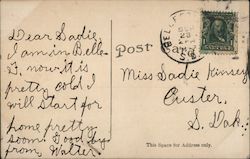 Dear Sadie,
I am in Belle
F. now it is
pretty cold I
will start for
home pretty
soon. Good by
from Walter
Post Card
BELLE FO
Miss Sadie Kinsey
Custer,
S. Dak.
This Space for Address only.